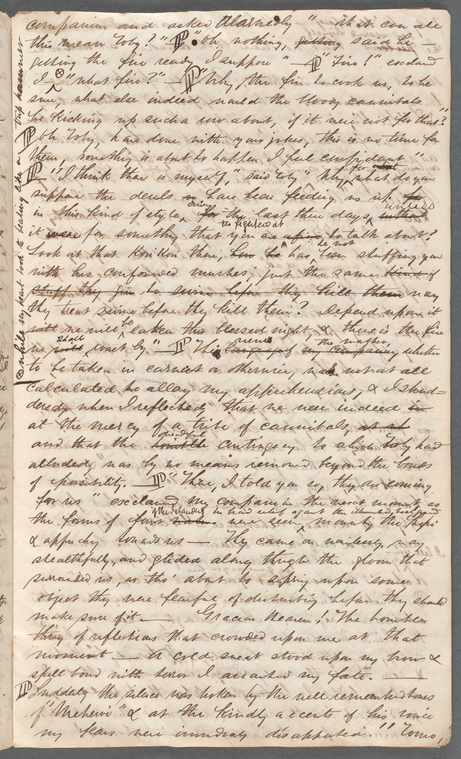 companion and asked alarmedly " what can all
this mean Toby?" " oh nothing, said he —
getting the fire ready I suppose " — "Fire!" exclaimed
I "what fire?" — "Why, the fire to cook us, to be
sure, what else indeed would the bloody cannibals
be kicking up such a row about, if it were not for that?"
"Oh Toby, have done with your jokes, this is no time for
them, something is about to happen I feel confident"
"I think there is myself," said Toby " Why, what do you
suppose the devils have been feeding us
in this kind of style, the last three days, unless
it were for something that you are to talk about?
Look at that Kori Kori there, has he not been stuffing you
with his confounded mushes, just the same way
stuff the to swine before they kill them
they treat swine before they kill them? Depend upon it
we will be eaten this blessed night, & there is the fire
we shall roast by" — This view of the matter, whether
to be taken in earnest or otherwise, was not at all
calculated to allay my apprehensions, & I shud-
dered when I reflected that we were indeed
at the mercy of a tribe of cannibals,
and that the dreadful contingency to which Toby had
alluded, was by no means removed beyond the bonds
of possibility. — "There, I told you so, they are coming
for us" exclaimed my companion the next moment, as
the forms of four of the Islanders were seen mounting the
in bold relief against the illuminated back ground
& approaching towards us — They came on noiselessly, nay
stealthfully, and glided along through the gloom that
surrounded us, as tho' about to spring upon some
object they were fearful of disturbing before they should
make sure of it. — Gracious Heaven! The horrible
thing of reflections that crowded upon me at that
moment — A cold sweat stood upon my brow &
spell bound with terror I awaited my fate. —
Suddenly the silence was broken by the well remembered tones
of "Mehevi" & at the kindly accents of his voice
my fears were immediately dissipated. "Tomo,
while my heart took to beating like a trip hammer